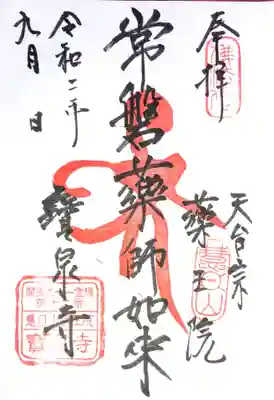 奉拝
天台宗
薬王院
常磐薬師如来
寶泉寺
令和二年
九月 日